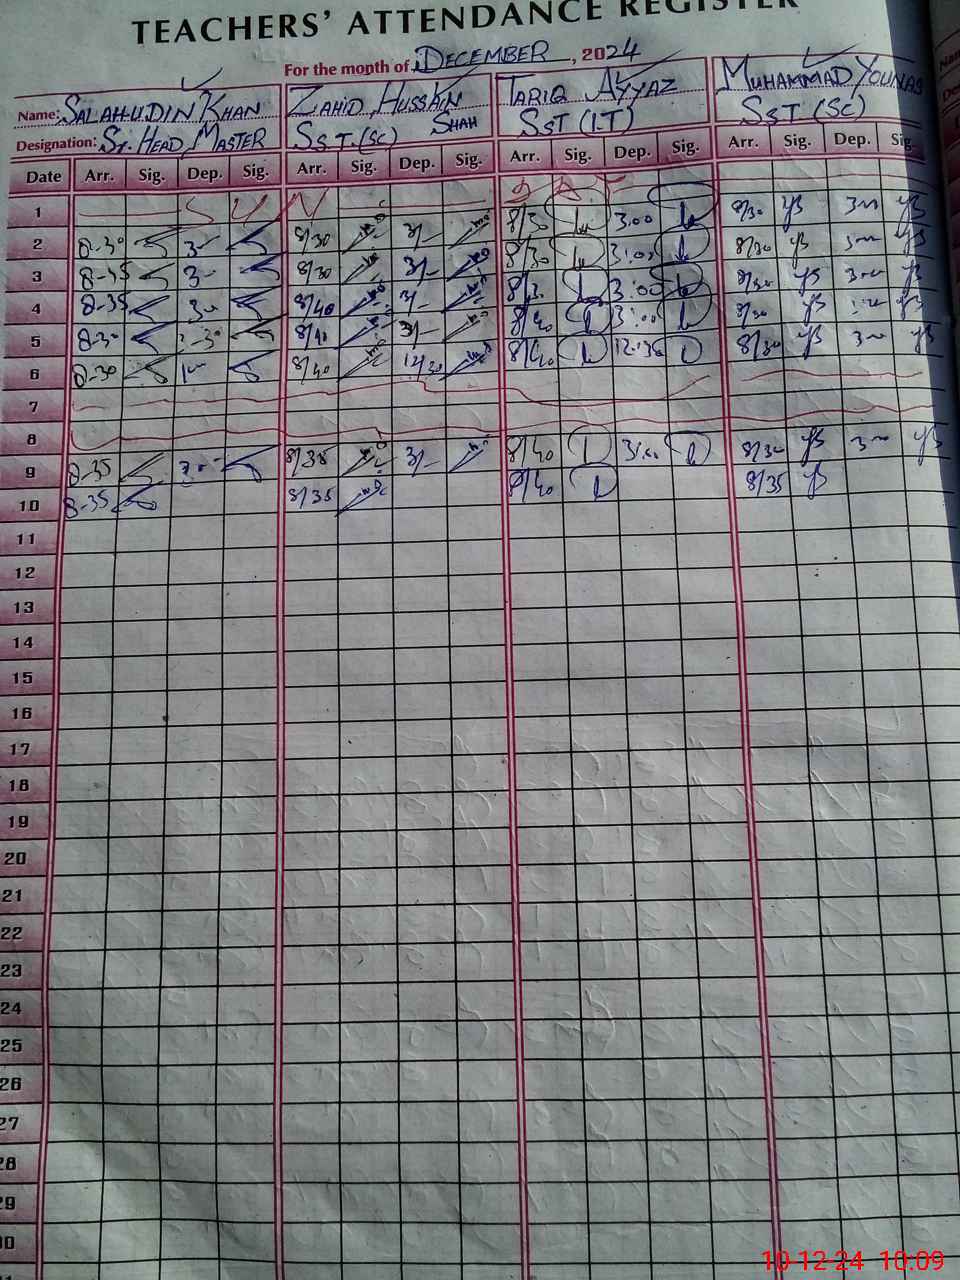 TEACHERS' ATTENDANCE REGISTER
For the month of DECEMBER, 2024
Name: SALAHUDIN KHAN ZAHID HUSSAIN SHAH TARIQ AYYAZ MUHAMMAD YOUNAS
Designation: Sr. HEAD MASTER S.S.T.(SC) SST (I.T) S.S.T (SC)
Date Arr. Sig. Dep. Sig. Arr. Sig. Dep. Sig. Arr. Sig. Dep. Sig. Arr. Sig. Dep. Sig.
1 S U N
2 8-30 3 8/30 3/- 8/30 3:00 8/30 YS YS
3 8-35 3 8/30 3/- 8/30 3:00 8/30 YS YS
4 8-35 3 8/40 3/- 8/3 3:00 8/30 YS YS
5 8-30 8/40 3/- 8/40 3:00 8/30 YS YS
6 8-30 8/40 12/30 8/40 12:30 8/30 YS YS
7
8
9 8-35 8/35 3/- 8/40 3:00 8/30 YS YS
10 8-35 8/35 8/40 8/35 YS
11
12
13
14
15
16
17
18
19
20
21
22
23
24
25
26
27
28
29
30
10-12-24 10:09